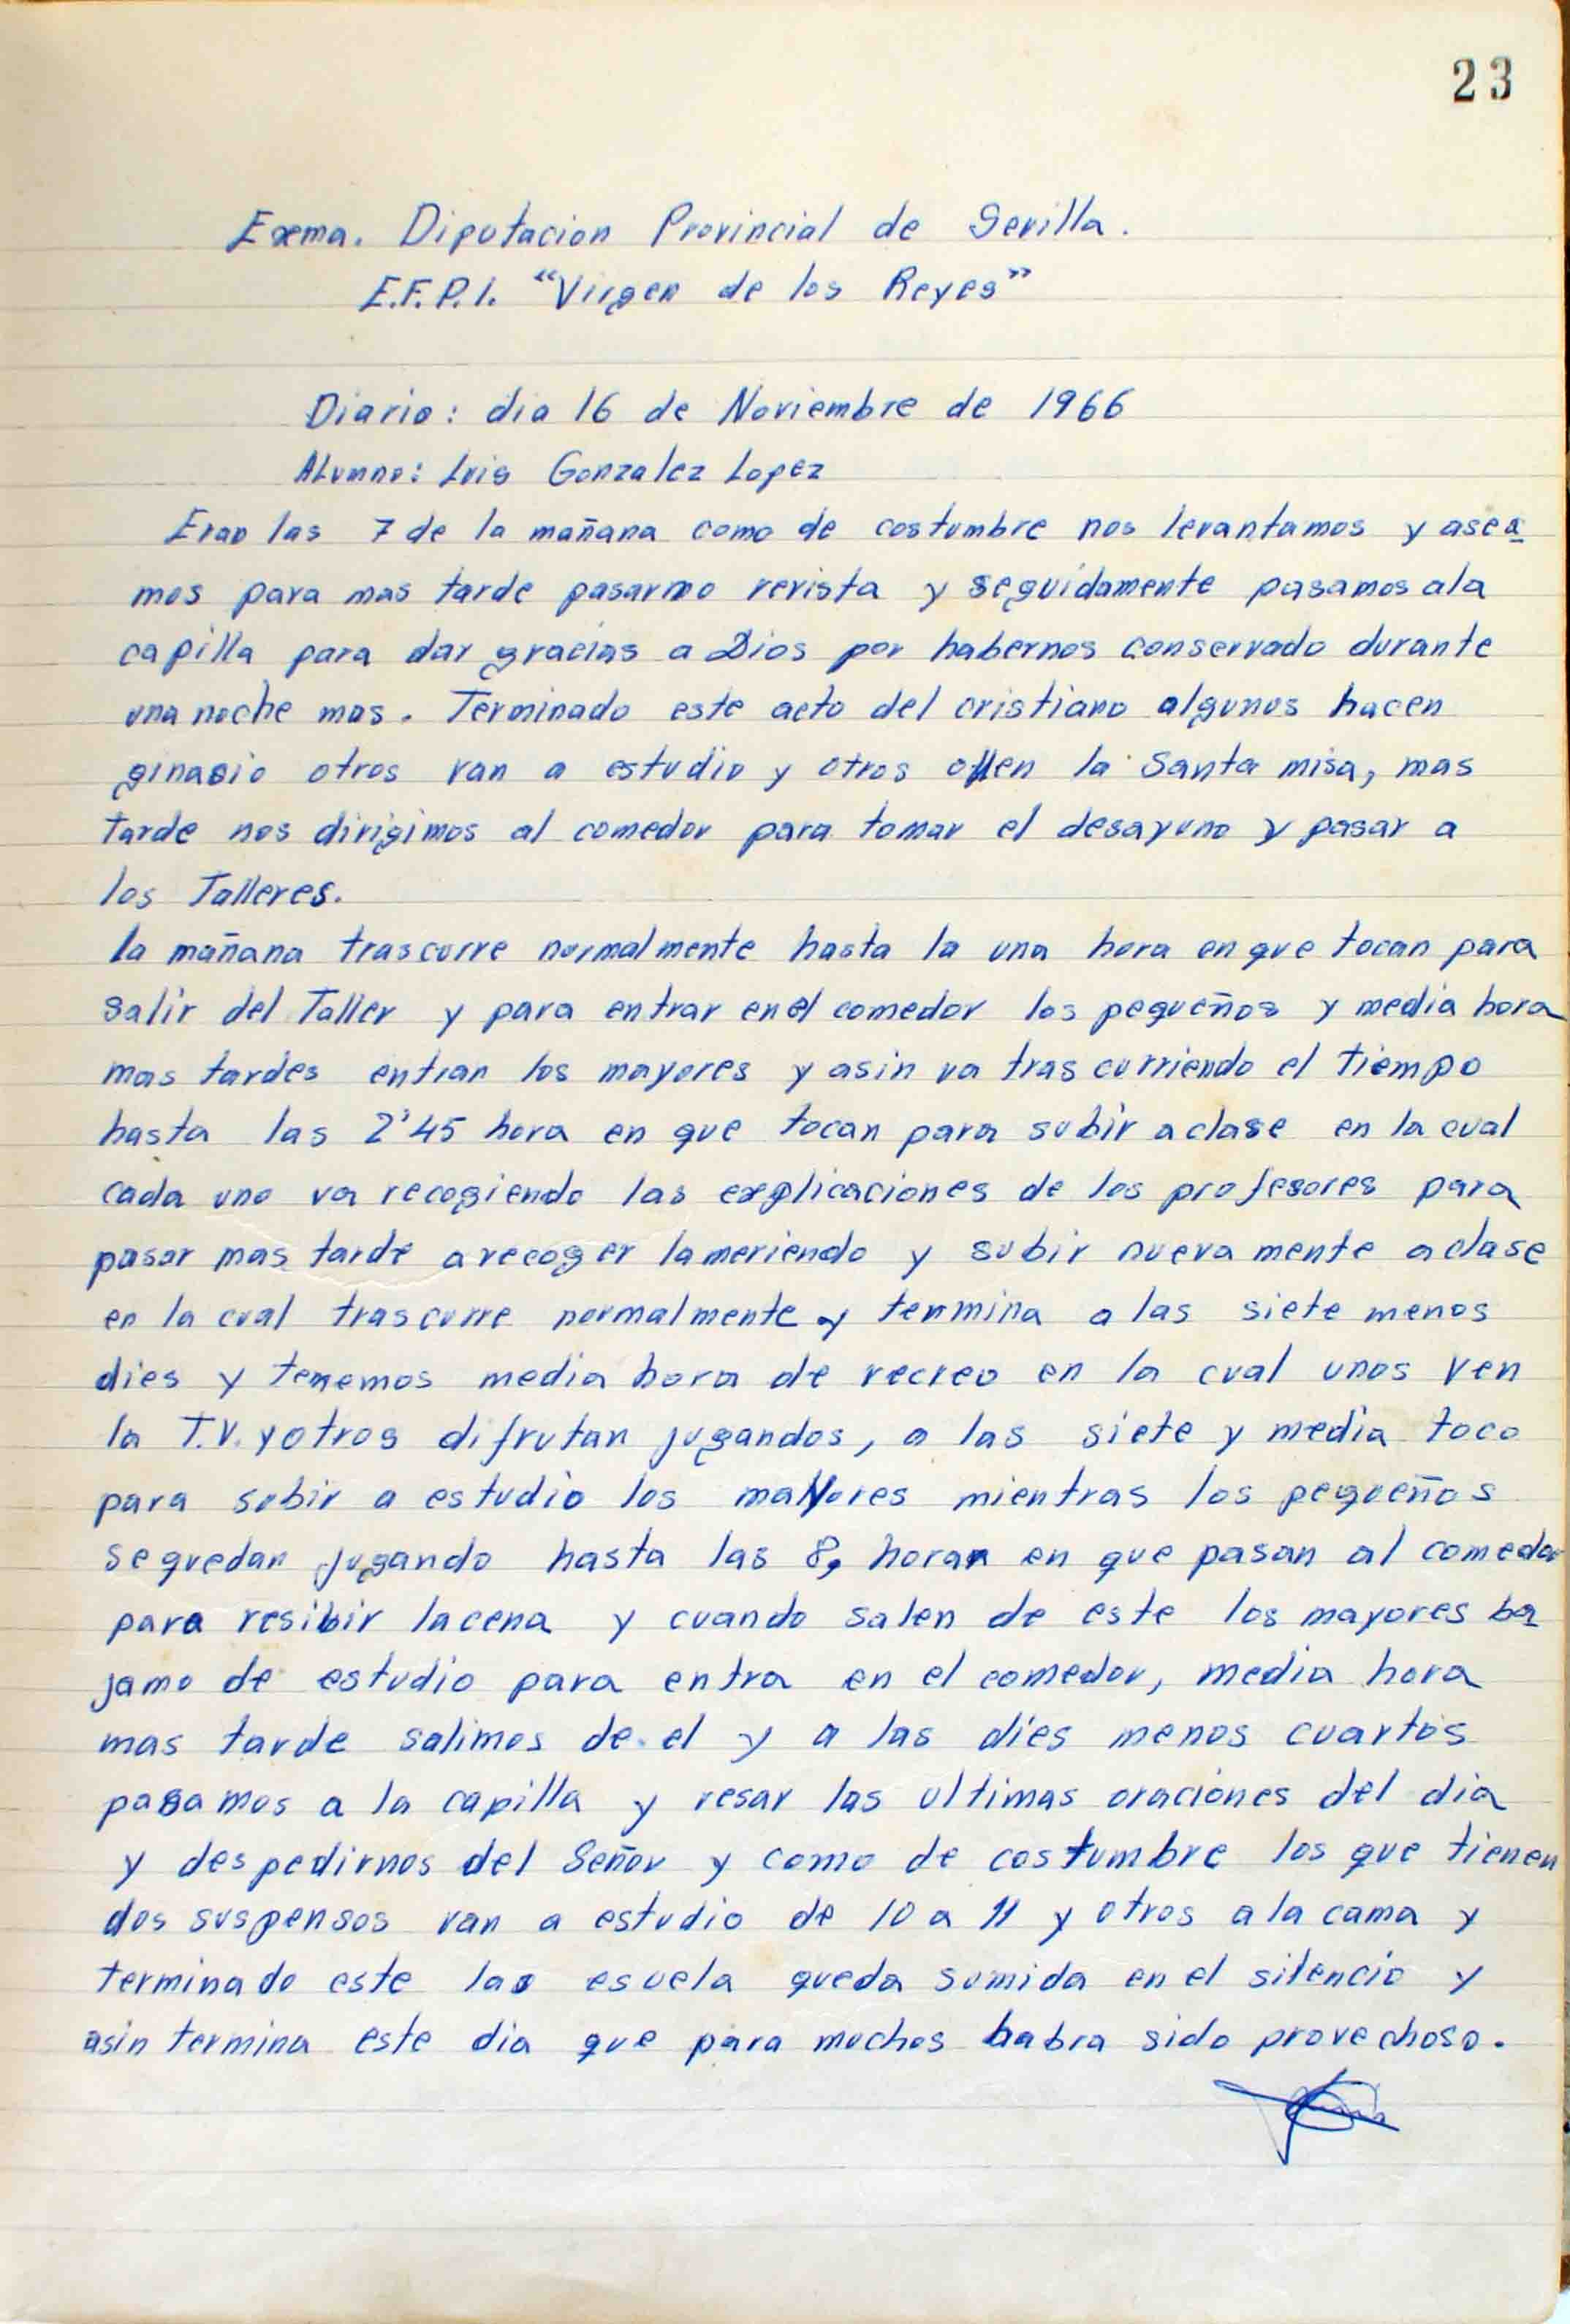 23
Exma. Diputacion Provincial de Sevilla.
E.F.P.I. "Virgen de los Reyes"
Diario: dia 16 de Noviembre de 1966
Alumno: Luis Gonzalez Lopez
Eran las 7 de la mañana como de costumbre nos levantamos y asea
mos para mas tarde pasarno revista y seguidamente pasamos ala
capilla para dar gracias a Dios por habernos conservado durante
una noche mas. Terminado este acto del cristiano algunos hacen
ginasio otros van a estudio y otros ollen la Santa misa, mas
tarde nos dirigimos al comedor para tomar el desayuno y pasar a
los Talleres.
la mañana trascurre normalmente hasta la una hora en que tocan para
salir del Taller y para entrar en el comedor los pequeños y media hora
mas tardes entran los mayores y asin va trascurriendo el tiempo
hasta las 2'45 hora en que tocan para subir a clase en la cual
cada uno va recogiendo las explicaciones de los profesores para
pasar mas tarde a recoger la meriendo y subir nueva mente a clase
en la cual trascurre normalmente y termina a las siete menos
dies y tenemos media hora de recreo en la cual unos ven
la T.V. y otros difrutan jugandos, a las siete y media toco
para subir a estudio los mayores mientras los pequeños
se quedan jugando hasta las 8, horan en que pasan al comedor
para resibir la cena y cuando salen de este los mayores ba
jamo de estudio para entra en el comedor, media hora
mas tarde salimos de el y a las dies menos cuartos
pasamos a la capilla y resar las ultimas oraciones del dia
y despedirnos del Señor y como de costumbre los que tienen
dos suspensos van a estudio de 10 a 11 y otros a la cama y
terminado este las esuela queda sumida en el silencio y
asin termina este dia que para muchos habra sido provechoso.